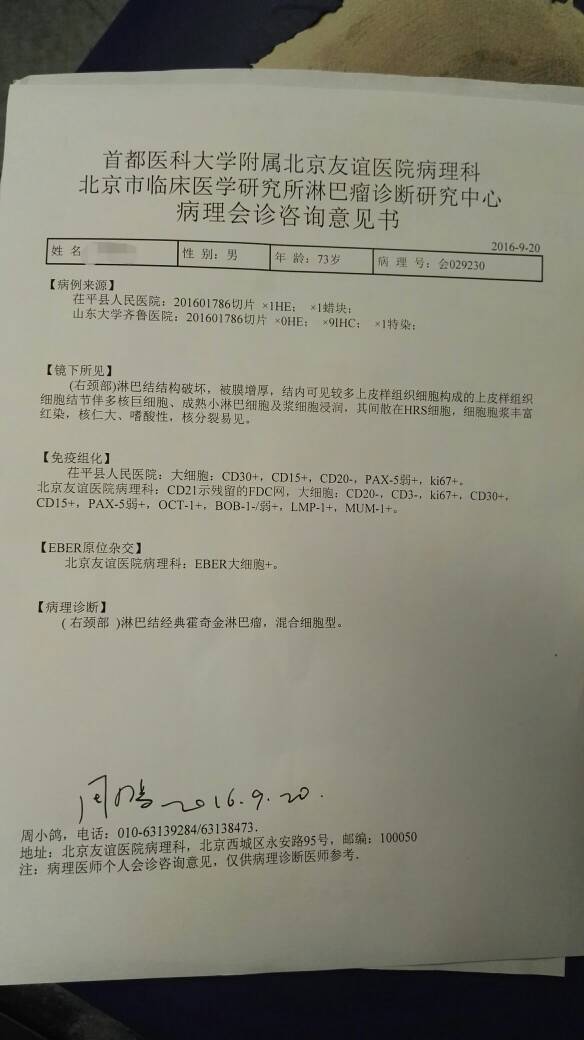 首都医科大学附属北京友谊医院病理科
北京市临床医学研究所淋巴瘤诊断研究中心
病理会诊咨询意见书
2016-9-20
姓 名 性 别：男 年 龄：73岁 病 理 号：会029230
【病例来源】
茌平县人民医院：201601786切片 ×1HE； ×1蜡块；
山东大学齐鲁医院：201601786切片 ×0HE； ×9IHC； ×1特染；
【镜下所见】
(右颈部)淋巴结结构破坏，被膜增厚，结内可见较多上皮样组织细胞构成的上皮样组织
细胞结节伴多核巨细胞、成熟小淋巴细胞及浆细胞浸润，其间散在HRS细胞，细胞胞浆丰富
红染，核仁大、嗜酸性，核分裂易见。
【免疫组化】
茌平县人民医院：大细胞：CD30+，CD15+，CD20-，PAX-5弱+，ki67+。
北京友谊医院病理科：CD21示残留的FDC网，大细胞：CD20-，CD3-，ki67+，CD30+，
CD15+，PAX-5弱+，OCT-1+，BOB-1-/弱+，LMP-1+，MUM-1+。
【EBER原位杂交】
北京友谊医院病理科：EBER大细胞+。
【病理诊断】
( 右颈部 )淋巴结经典霍奇金淋巴瘤，混合细胞型。
2016.9.20.
周小鸽，电话：010-63139284/63138473.
地址：北京友谊医院病理科，北京西城区永安路95号，邮编：100050
注：病理医师个人会诊咨询意见，仅供病理诊断医师参考.